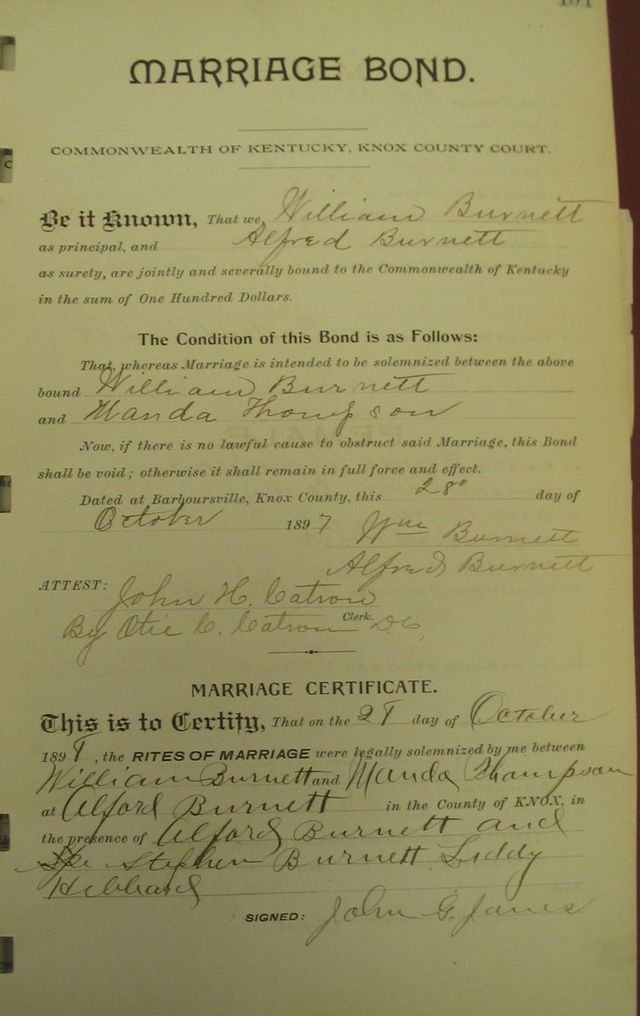 MARRIAGE BOND.
COMMONWEALTH OF KENTUCKY, KNOX COUNTY COURT.
Be it Known, That we, William Burnett
as principal, and Alfred Burnett
as surety, are jointly and severally bound to the Commonwealth of Kentucky
in the sum of One Hundred Dollars.
The Condition of this Bond is as Follows:
That, whereas Marriage is intended to be solemnized between the above
bound William Burnett
and Manda Thompson
Now, if there is no lawful cause to obstruct said Marriage, this Bond
shall be void; otherwise it shall remain in full force and effect.
Dated at Barboursville, Knox County, this 28" day of
October 1897
Wm Burnett
Alfred Burnett
ATTEST: John H. Catron
Clerk.
By Otie C. Catron D.C.
MARRIAGE CERTIFICATE.
This is to Certify, That on the 28 day of October
189, the RITES OF MARRIAGE were legally solemnized by me between
William Burnett and Manda Thompson
at Alford Burnett in the County of KNOX, in
the presence of Alford Burnett and
Stephen Burnett Liddy
Hibbard
SIGNED: John G. Jones